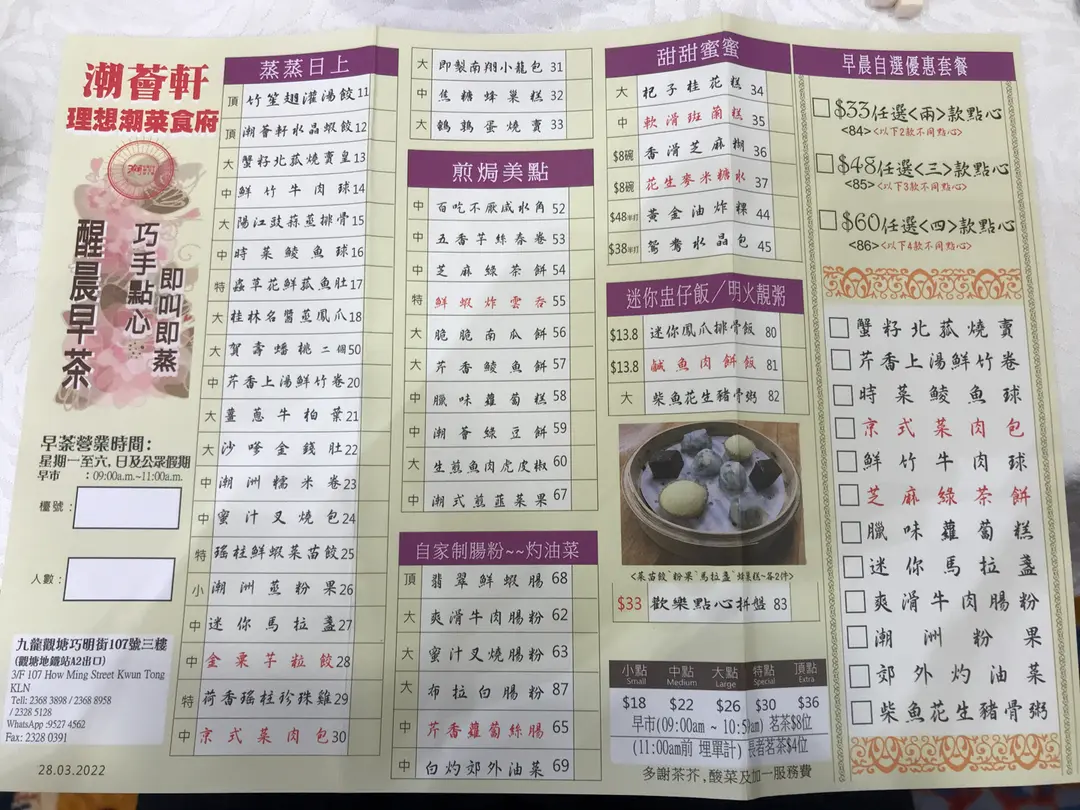 潮薈軒
理想潮菜食府
醒晨早茶
巧手點心
即叫即蒸
早茶營業時間：
星期一至六，日及公眾假期
早市 ：09:00a.m.~11:00a.m.
檯號：
人數：
九龍觀塘巧明街107號三樓
(觀塘地鐵站A2出口)
3/F 107 How Ming Street Kwun Tong
KLN
Tell: 2368 3898 / 2368 8958
/ 2328 5128
WhatsApp :9527 4562
Fax: 2328 0391
28.03.2022
蒸蒸日上
頂 竹笙翅灌湯餃 11
頂 潮薈軒水晶蝦餃 12
大 蟹籽北菰燒賣皇 13
中 鮮竹牛肉球 14
大 陽江豉蒜蒸排骨 15
中 時菜鯪魚球 16
特 蟲草花鮮菰魚肚 17
大 桂林名醬蒸鳳爪 18
大 賀壽蟠桃二個 50
中 芹香上湯鮮竹卷 20
大 薑蔥牛柏葉 21
大 沙嗲金錢肚 22
中 潮洲糯米卷 23
中 蜜汁叉燒包 24
特 瑤柱鮮蝦菜苗餃 25
小 潮洲蒸粉果 26
中 迷你馬拉盞 27
中 金粟芋粒餃 28
特 荷香瑤柱珍珠雞 29
中 京式菜肉包 30
大 即製南翔小龍包 31
中 焦糖蜂巢糕 32
大 鵪鶉蛋燒賣 33
煎焗美點
中 百吃不厭咸水角 52
中 五香芋絲春卷 53
中 芝麻綠茶餅 54
特 鮮蝦炸雲吞 55
大 脆脆南瓜餅 56
大 芹香鯪魚餅 57
中 臘味蘿蔔糕 58
中 潮薈綠豆餅 59
大 生煎魚肉虎皮椒 60
中 潮式煎韮菜果 67
自家制腸粉~~灼油菜
頂 翡翠鮮蝦腸 68
大 爽滑牛肉腸粉 62
大 蜜汁叉燒腸粉 63
大 布拉白腸粉 87
中 芹香蘿蔔絲腸 65
中 白灼郊外油菜 69
甜甜蜜蜜
大 杞子桂花糕 34
中 軟滑班蘭糕 35
$8碗 香滑芝麻糊 36
$8碗 花生麥米糖水 37
$48半打 黃金油炸粿 44
$38半打 鴛鴦水晶包 45
迷你盅仔飯／明火靚粥
$13.8 迷你鳳爪排骨飯 80
$13.8 鹹魚肉餅飯 81
大 柴魚花生豬骨粥 82
<菜苗餃~粉果~馬拉盞~蜂巢糕~各2件>
$33 歡樂點心拼盤 83
小點 中點 大點 特點 頂點
Small Medium Large Special Extra
$18 $22 $26 $30 $36
早市(09:00am ~ 10:59am) 茗茶$8位
(11:00am前 埋單計) 長者茗茶$4位
多謝茶芥，酸菜及加一服務費
早晨自選優惠套餐
$33任選<兩>款點心
<84><以下2款不同點心>
$48任選<三>款點心
<85><以下3款不同點心>
$60任選<四>款點心
<86><以下4款不同點心>
蟹籽北菰燒賣
芹香上湯鮮竹卷
時菜鯪魚球
京式菜肉包
鮮竹牛肉球
芝麻綠茶餅
臘味蘿蔔糕
迷你馬拉盞
爽滑牛肉腸粉
潮洲粉果
郊外灼油菜
柴魚花生豬骨粥